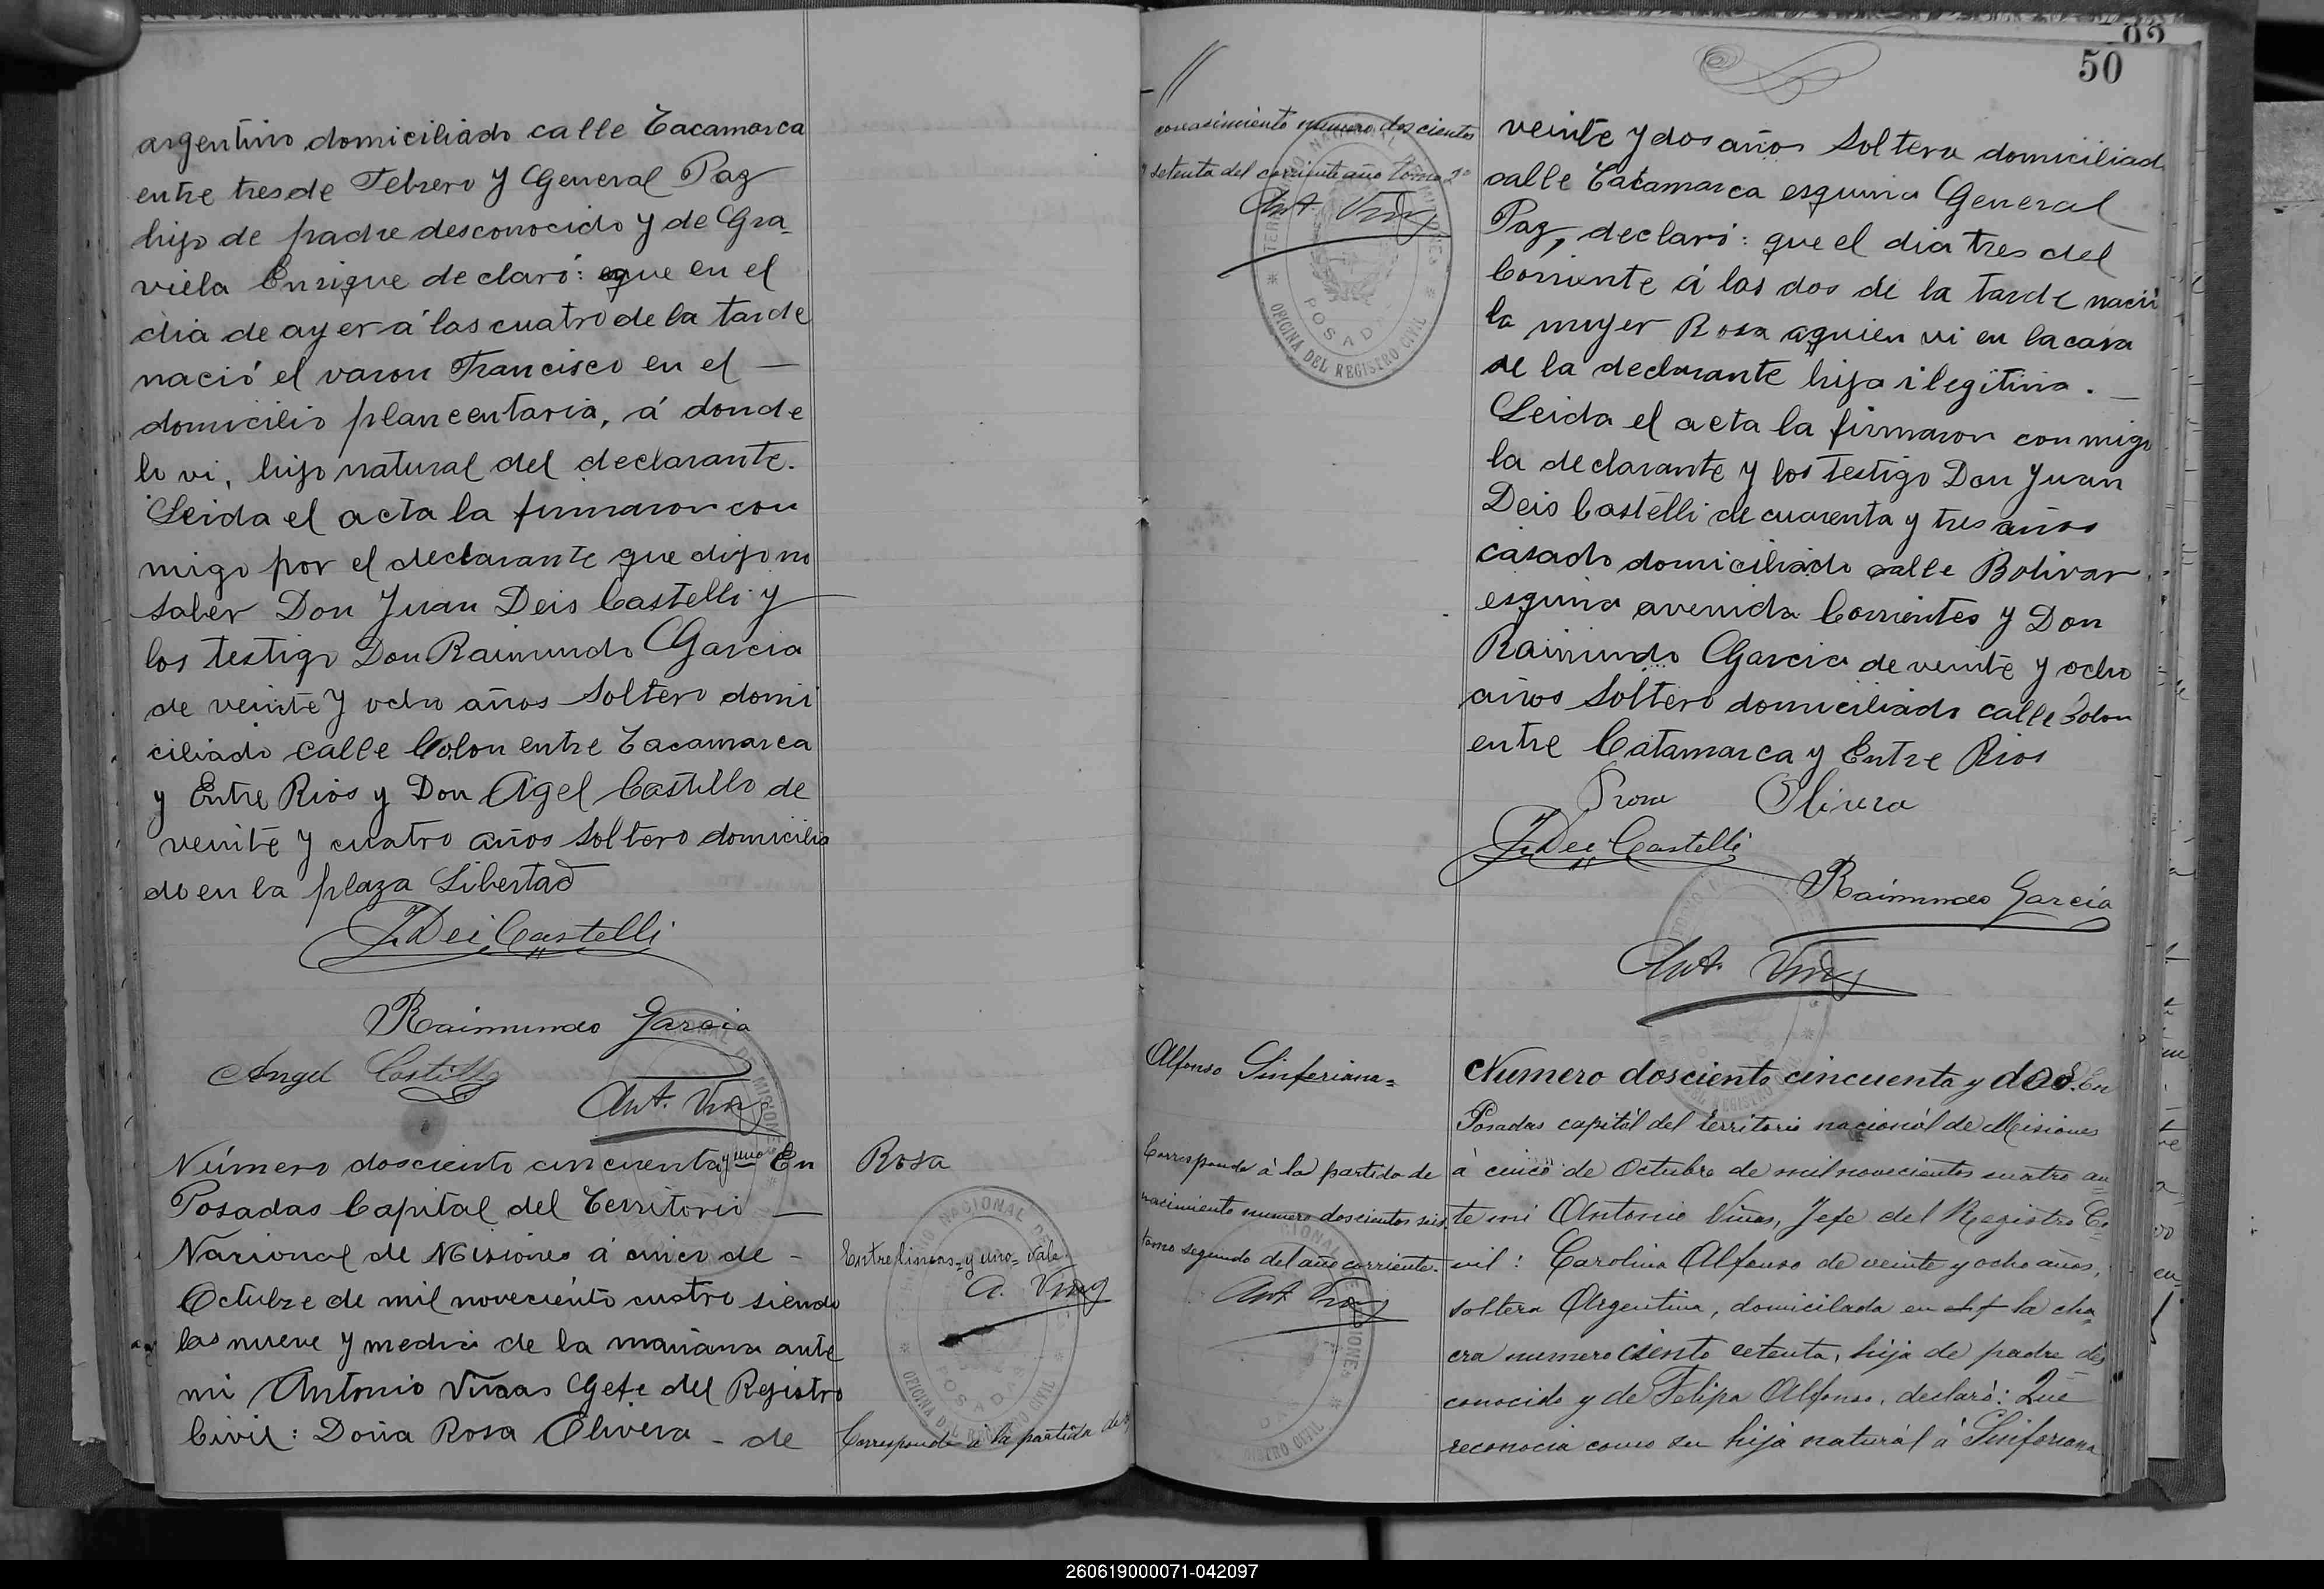 argentino domiciliado calle Catamarca
entre tres de Febrero y General Paz
hijo de padre desconocido y de Gra_
viela Enrique declaró: que en el
dia de ayer á las cuatro de la tarde
nació el varon Francisco en el —
domicilio planeentaria, á donde
lo vi, hijo natural del declarante.
Leida el acta la firmaron con
migo por el declarante que dijo no
saber Don Juan Deis Castelli y
los testigo Don Raimundo Garcia
de veinte y ocho años soltero domi
ciliado calle Colon entre Catamarca
y Entre Rios y Don Agel Castillo de
veinte y cuatro años soltero domicilia
do en la plaza Libertad
J. Dei Castelli
Raimundo Garcia
Angel Castillo
Ant. Viñas
Número dosciento cincuenta y uno En
Posadas Capital del Territorio —
Nacional de Misiones á cinco de -
Octubre de mil noveciento cuatro siendo
las nueve y media de la mañana ante
mi Antonio Viñas Gefe del Registro
Civil: Doña Rosa Olivera - de
Rosa
Entre lineas=y uno=vale.
A. Viñas
Corresponde á la partida de
50
conocimiento numero doscientos
setenta del corriente año tomo 2º
Ant. Viñas
OFICINA DEL REGISTRO CIVIL
POSADAS
veinte y dos años soltera domiciliad
calle Catamarca esquina General
Paz, declaró: que el dia tres del
Corriente á las dos de la tarde nació
la mujer Rosa aquien vi en la casa
de la declarante hija ilegitima. _
Leida el acta la firmaron conmigo
la declarante y los testigo Don Juan
Deis Castelli de cuarenta y tres años
casado domiciliado calle Bolivar
esquina avenida Corrientes y Don
Raimundo Garcia de veinte y ocho
años soltero domiciliado calle Colon
entre Catamarca y Entre Rios
Rosa Olivera
J. Dei Castelli
Raimundo Garcia
Ant. Viñas
Alfonso Sinforiana=
Corresponde á la partida de
nacimiento numero doscientos seis
tomo segundo del año corriente.
Ant. Viñas
Numero dosciento cincuenta y dos. En
Posadas capitál del territorio nacionál de Misiones
á cinco de Octubre de mil novecientos cuatro an
te mi Antonio Viñas, Jefe del Registro Ci
vil: Carolina Alfonso de veinte y ocho años,
soltera Argentina, domicilada en la cha
cra numero ciento setenta, hija de padre des
conocido y de Felipa Alfonso, declaró: Que
reconocia como su hija naturál á Sinforiana
260619000071-042097